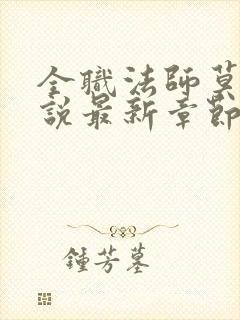 全職法師莫
說最新章節
鍾芳墓